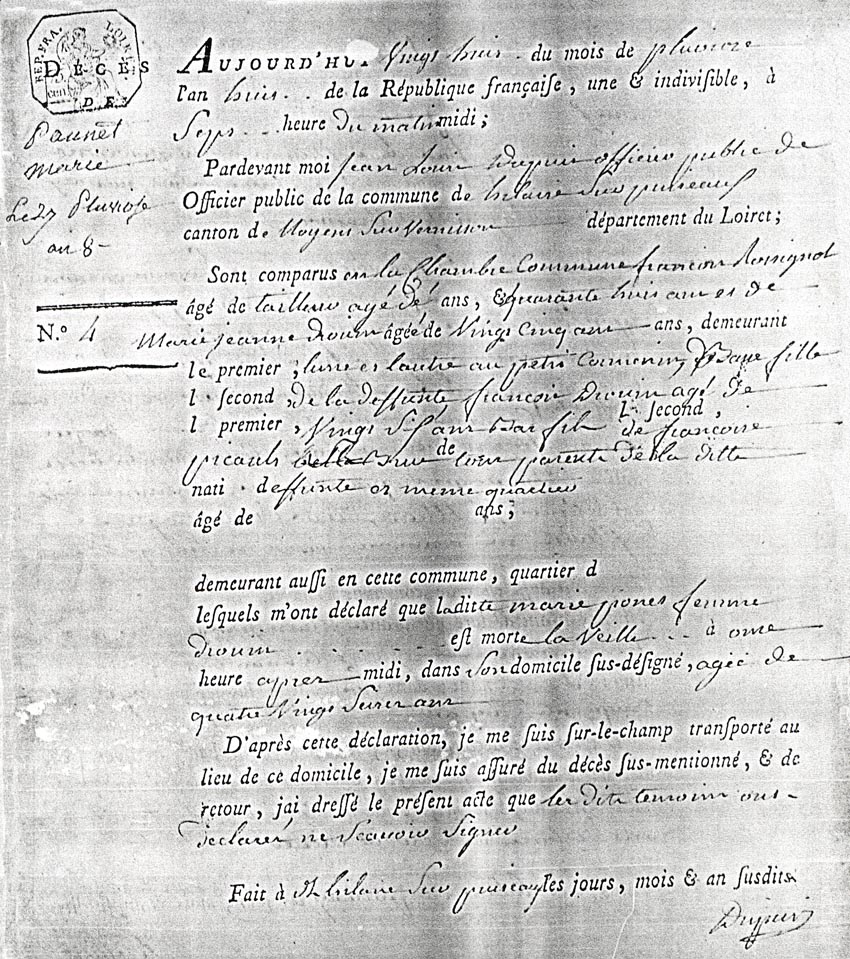 REP. FRA.
LOIRET
DÉCÈS
DE
Paunet
marie
Le 27 Pluviose
an 8
N.º 4
AUJOURD'HUI Vingt huit du mois de pluviose
l'an huit de la République françaiſe, une & indiviſible, à
Sept heure du matin midi;
Pardevant moi Jean Louis Dupuis officier public de
Officier public de la commune de hilaire Sur puiseaux
canton de Noyent Sur Vernisson département du Loiret;
Sont comparus en la Chambre Commune francoin Rossignol
âgé de tailleur agé de ans, & quarante huit ans et de
Marie jeanne Drouin âgée de Vingt Cinq ans ans, demeurant
le premier, lune et lautre au petit fille
l ſecond, de la deffunte francois Drouin agé de
l premier, Vingt ans fils L ſecond,
de francoise
picault de parente de la ditte
nati deffunte et meme quartier
âgé de ans;
demeurant auſſi en cette commune, quartier d
leſquels m'ont déclaré que laditte marie pones femme
Drouin est morte la Veille à onze
heure apres midi, dans Son domicile ſus-déſigné, agée de
quatre Vingt Seize ans
D'après cette déclaration, je me ſuis ſur-le-champ tranſporté au
lieu de ce domicile, je me ſuis aſſuré du décès ſus-mentionné, & de
retour, jai dreſſé le préſent acte que les dits temoins ont
declaré ne Scavoir Signer
Fait à St hilaire Sur puiseaux les jours, mois & an ſusdits
Dupuis